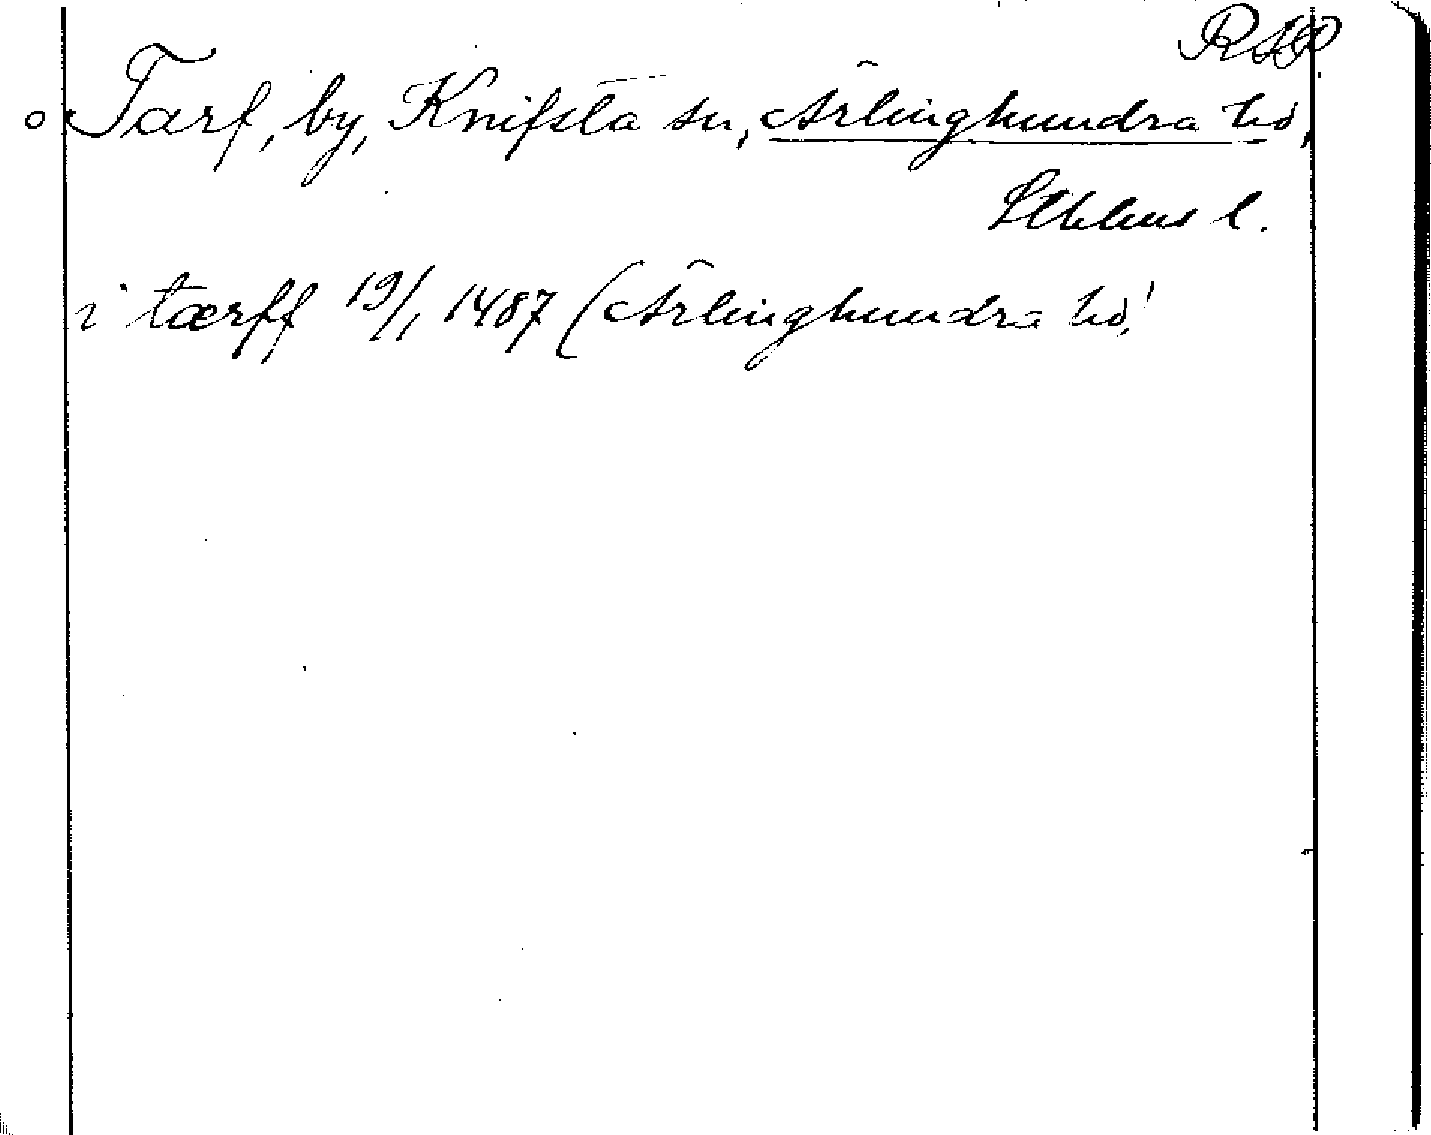 RAP.
Tarf, by, Knifsta sn, Ärlinghundra hd,
Sthlms l.
i tærff 19/1 1487 (Ärlinghundra hd!